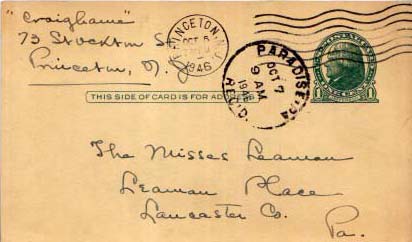 "Craighame"
73 Stockton St
Princeton, N. J.
PRINCETON, N.J.
OCT 5
1946
PARADISE, PA
OCT 7
9 AM
1946
REC'D
THIS SIDE OF CARD IS FOR ADDRESS
The Misses Leaman
Leaman Place
Lancaster Co.
Pa.